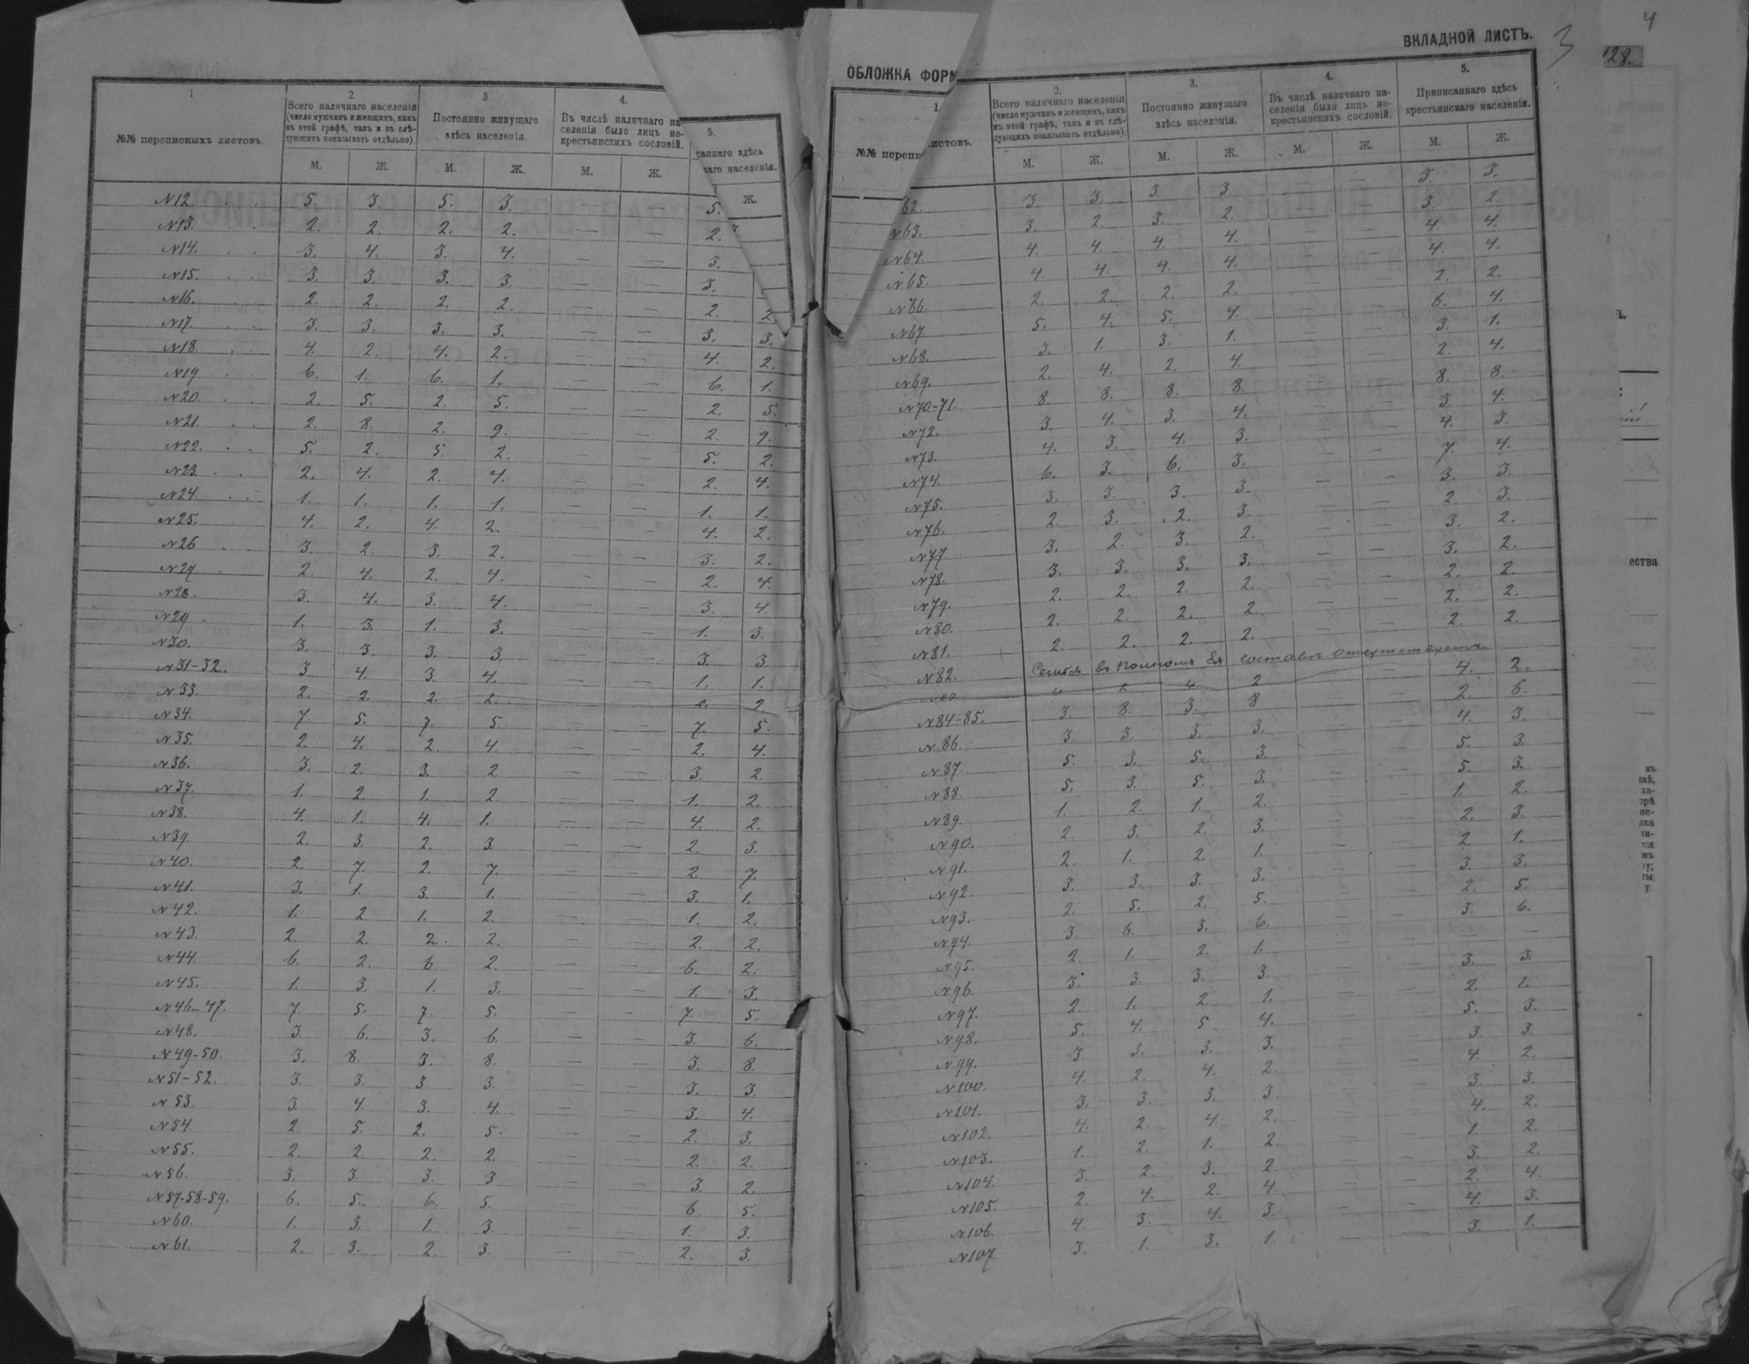 1
2
3
4.
5.
№№ переписныхъ листовъ.
Всего наличнаго населенія (число мужчинъ и женщинъ, какъ въ этой графѣ, такъ и въ слѣдующихъ показывать отдѣльно).
Постоянно живущаго здѣсь населенія.
Въ числѣ наличнаго населенія было лицъ некрестьянскихъ сословій.
М. Ж. М. Ж. М. Ж. Ж.
№12. 5. 3. 5. 3. 5.
№13. 2. 2. 2. 2. — — 2.
№14. 3. 4. 3. 4. — — 3.
№15. 3. 3. 3. 3. — — 3.
№16. 2. 2. 2. 2. — — 2. 2.
№17. 3. 3. 3. 3. — — 3. 3.
№18. 4. 2. 4. 2. — — 4. 2.
№19 6. 1. 6. 1. — — 6. 1.
№20. 2. 5. 2. 5. — — 2. 5.
№21. 2. 8. 2. 9. — — 2. 9.
№22. 5. 2. 5. 2. — — 5. 2.
№23. 2. 4. 2. 4. — — 2. 4.
№24. 1. 1. 1. 1. — — 1. 1.
№25. 4. 2. 4. 2. — — 4. 2.
№26 3. 2. 3. 2. — — 3. 2.
№27 2. 4. 2. 4. — — 2. 4.
№28. 3. 4. 3. 4. — — 3. 4.
№29 1. 3. 1. 3. — — 1. 3.
№30. 3. 3. 3. 3. — — 3. 3.
№31-32. 3. 4. 3. 4. — — 1. 1.
№33. 2. 2. 2. 2. — — 2. 2
№34. 7. 5. 7. 5. — — 7. 5.
№35. 2. 4. 2. 4. — — 2. 4.
№36. 3. 2. 3. 2 — — 3. 2
№37. 1. 2. 1. 2 — — 1. 2.
№38. 4. 1. 4. 1. — — 4. 2.
№39 2. 3. 2. 3 — — 2. 3.
№40. 2. 7. 2. 7. — — 2. 7.
№41. 3. 1. 3. 1. — — 3. 1.
№42. 1. 2 1. 2. — — 1. 2.
№43. 2. 2. 2. 2. — — 2. 2.
№44. 6. 2. 6. 2. — — 6. 2.
№45. 1. 3. 1. 3. — — 1. 3.
№46-47. 7. 5. 7. 5. — — 7. 5.
№48. 3. 6. 3. 6. — — 3. 6.
№49-50. 3. 8. 3. 8. — — 3. 8.
№51-52. 3. 3. 3 3. — — 3. 3
№53. 3. 4. 3. 4. — — 3. 4.
№54 2. 5. 2. 5. — — 2. 3.
№55. 2. 2. 2. 2. — — 2. 2.
№56. 3. 3. 3. 3 — — 3. 2
№57-58-59. 6. 5. 6. 5. — — 6. 5.
№60. 1. 3. 1. 3. — — 1. 3.
№61. 2. 3. 2. 3. — — 2. 3.
ОБЛОЖКА ФОРМ
ВКЛАДНОЙ ЛИСТЪ.
3
1.
2.
3.
4.
5.
листовъ.
Всего наличнаго населенія (число мужчинъ и женщинъ, какъ въ этой графѣ, такъ и въ слѣдующихъ показывать отдѣльно).
Постоянно живущаго здѣсь населенія.
Въ числѣ наличнаго населенія было лицъ некрестьянскихъ сословій.
Приписаннаго здѣсь крестьянскаго населенія.
М. Ж. М. Ж. М. Ж. М. Ж.
62. 3. 3. 3. 3. — — 3. 3.
№63. 3. 2. 3. 2. — — 3. 2.
№64. 4. 4. 4. 4. — — 4. 4.
№65. 4. 4. 4. 4. — — 4. 4.
№66. 2. 2. 2. 2. — — 2. 2.
№67 5. 4. 5. 4. — — 6. 4.
№68. 3. 1. 3. 1. — — 3. 1.
№69. 2. 4. 2. 4. — — 2. 4.
№70-71. 8. 8. 8. 8. — — 8. 8.
№72. 3. 4. 3. 4. — — 3. 4.
№73. 4. 3. 4. 3. — — 4. 3.
№74. 6. 3. 6. 3. — — 7. 4.
№75. 3. 3. 3. 3. — — 3. 3.
№76. 2. 3. 2. 3. — — 2. 3.
№77 3. 2. 3. 2. — — 3. 2.
№78. 3. 3. 3. 3. — — 3. 2.
№79. 2. 2. 2. 2. — — 2. 2
№80. 2. 2. 2. 2. — — 2. 2.
№81. 2. 2. 2. 2. — — 2. 2.
№82. Семья въ полномъ Ея составѣ отсутствуетъ.
4. 2 4. 2.
№84-85. 3. 8. 3. 8. — — 2. 6.
№86. 3. 3. 3. 3. — — 4. 3.
№87 5. 3. 5. 3. — — 5. 3.
№88. 5. 3. 5. 3. — — 5. 3.
№89 1. 2. 1. 2. — — 1. 2.
№90. 2. 3. 2. 3. — — 2. 3.
№91. 2. 1. 2. 1. — — 2. 1.
№92. 3. 3. 3. 3. — — 3. 3.
№93. 2. 5. 2. 5. — — 2. 5.
№94. 3. 6. 3. 6. — — 3. 6.
№95. 2. 1. 2. 1. — — — —
№96. 3. 3. 3. 3. — — 3. 3.
№97. 2. 1. 2. 1. — — 2. 1.
№98. 5. 4. 5 4. — — 5. 3.
№99. 3. 3. 3. 3. — — 3. 3.
№100. 4. 2. 4. 2. — — 4. 2.
№101. 3. 3. 3. 3. — — 3. 3.
№102. 4. 2. 4. 2. — — 4. 2.
№103. 1. 2. 1. 2. — — 1. 2.
№104. 3. 2. 3. 2. — — 3. 2.
№105. 2. 4. 2. 4. — — 2. 4.
№106. 4 3. 4. 3. — — 4. 3.
№107 3. 1. 3. 1. — — 3. 1.
4
128.
ества